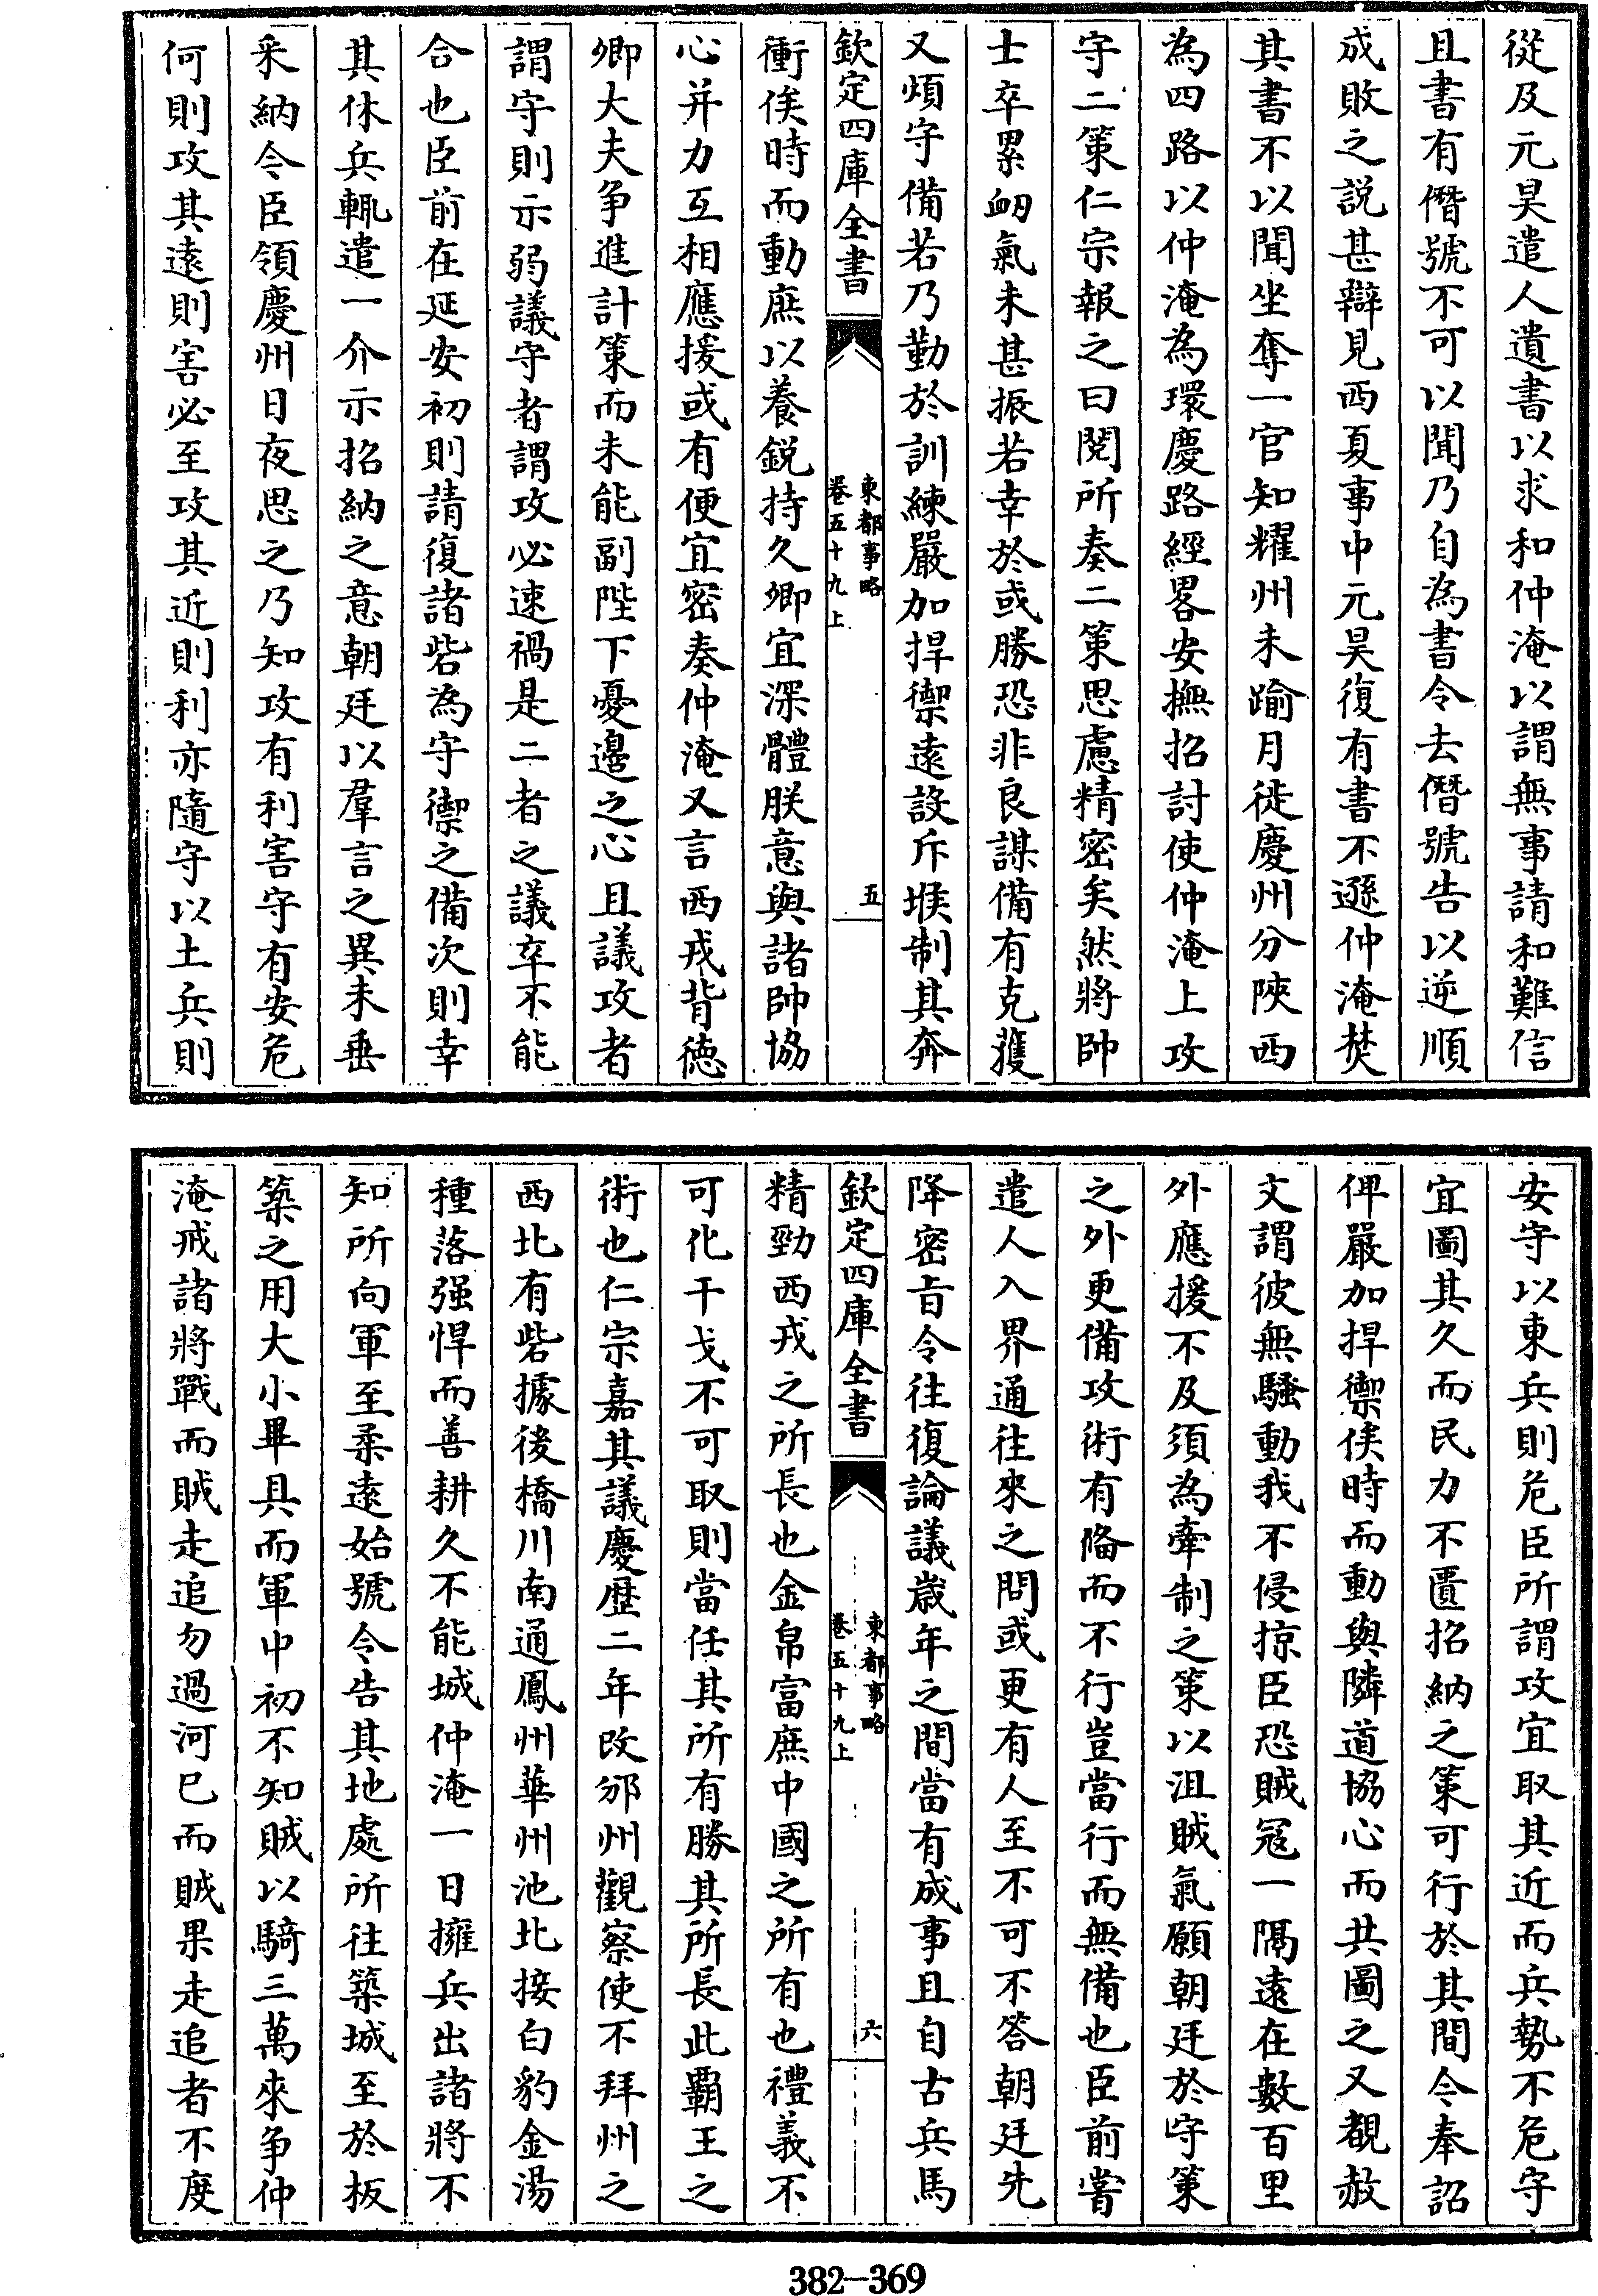 從及元昊遣人遺書以求和仲淹以謂無事請和難信
且書有僭號不可以聞乃自為書令去僭號告以逆順
成敗之説甚辯見西夏事中元昊復有書不遜仲淹焚
其書不以聞坐奪一官知耀州未踰月徙慶州分陜西
為四路以仲淹為環慶路經畧安撫招討使仲淹上攻
守二策仁宗報之曰閱所奏二策思慮精密矣然將帥
士卒累衂氣未甚振若幸於或勝恐非良謀備有克獲
又煩守備若乃勤於訓練嚴加捍禦遠設斥堠制其奔
欽定四庫全書
東都事略
卷五十九上
五
衝俟時而動庶以養鋭持久卿宜深體朕意與諸帥協
心并力互相應援或有便宜密奏仲淹又言西戎背徳
卿大夫争進計策而未能副陛下憂邊之心且議攻者
謂守則示弱議守者謂攻必速禍是二者之議卒不能
合也臣前在延安初則請復諸砦為守禦之備次則幸
其休兵輒遣一介示招納之意朝廷以羣言之異未垂
采納今臣領慶州日夜思之乃知攻有利害守有安危
何則攻其遠則害必至攻其近則利亦隨守以土兵則
安守以東兵則危臣所謂攻宜取其近而兵勢不危守
宜圖其久而民力不匱招納之策可行於其間今奉詔
俾嚴加捍禦俟時而動與隣道協心而共圖之又覩赦
文謂彼無騷動我不侵掠臣恐賊冦一隅遠在數百里
外應援不及須為牽制之策以沮賊氣願朝廷於守策
之外更備攻術有備而不行豈當行而無備也臣前嘗
遣人入界通往來之問或更有人至不可不答朝廷先
降密旨令往復論議歲年之間當有成事且自古兵馬
欽定四庫全書
東都事略
卷五十九上
六
精勁西戎之所長也金帛富庶中國之所有也禮義不
可化干戈不可取則當任其所有勝其所長此覇王之
術也仁宗嘉其議慶歴二年改邠州觀察使不拜州之
西北有砦據後橋川南通鳳州華州池北接白豹金湯
種落强悍而善耕久不能城仲淹一日擁兵出諸將不
知所向軍至柔遠始號令告其地處所往築城至於板
築之用大小畢具而軍中初不知賊以騎三萬來争仲
淹戒諸將戰而賊走追勿過河巳而賊果走追者不度
382-369